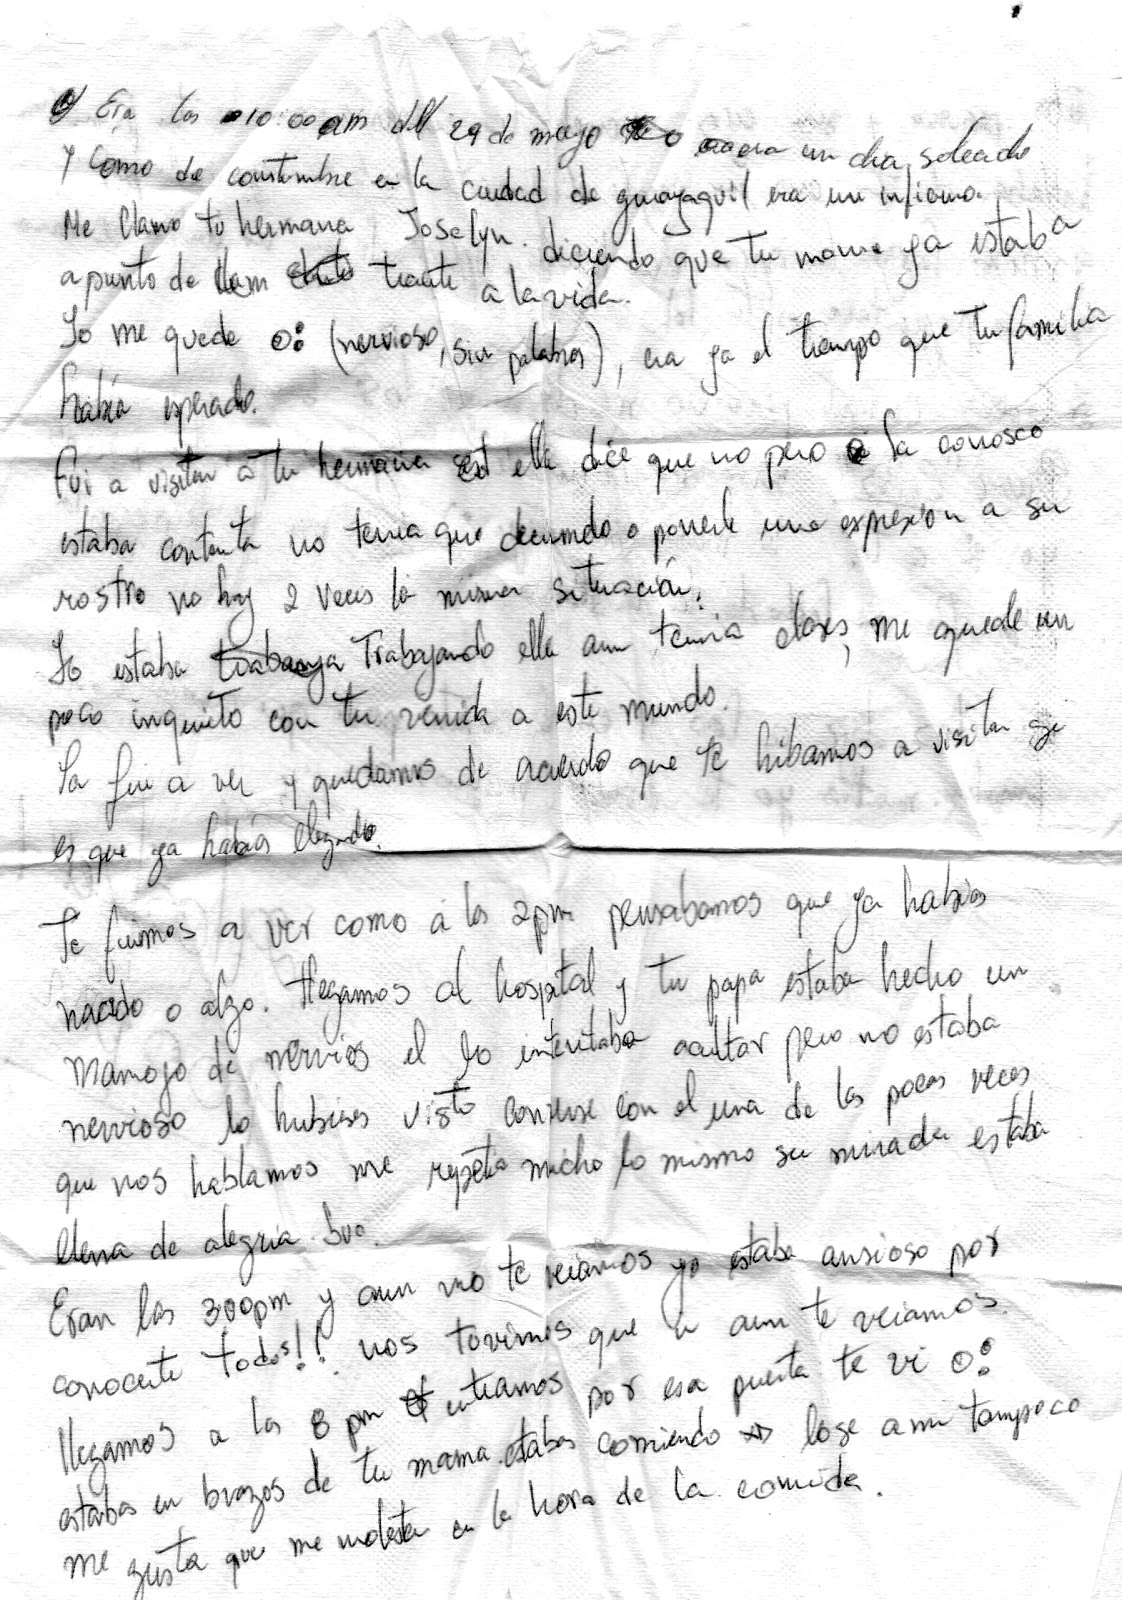 Era las 10:00am del 29 de mayo era un dia soleado
y como de constumbre en la ciudad de guayaquil era un infierno.
Me llamo tu hermana Joselyn. diciendo que tu mama ya estaba
a punto de traerte a la vida.
Yo me quede o: (nervioso, sin palabras), era ya el tiempo que tu familia
había esperado.
Fui a visitar a tu hermana ella dice que no pero la conosco
estaba contenta no tenia que diciendo o ponerle una expresion a su
rostro no hay 2 veces la misma situación.
Yo estaba Trabajando ella aun tenia clases, me quede un
poco inquieto con tu venida a este mundo.
La fui a ver y quedamos de acuerdo que te hibamos a visitar si
es que ya habías llegado.
Te fuimos a ver como a las 2pm pensabamos que ya habias
nacido o algo. Llegamos al hospital y tu papa estaba hecho un
manojo de nervios el lo intentaba ocultar pero no estaba
nervioso lo hubises visto converse con el una de las pocas veces
que nos hablamos me repeta mucho lo mismo su mirada estaba
llena de alegria.
Eran las 3:00pm y aun no te veiamos yo estaba ansioso por
conocerte todos!! nos tovimos que ir aun te veiamos.
llegamos a las 8 pm entramos por esa puerta te vi o:
estabas en brazos de tu mama estabas comiendo lo se a mi tampoco
me gusta que me molesten en la hora de la comida.